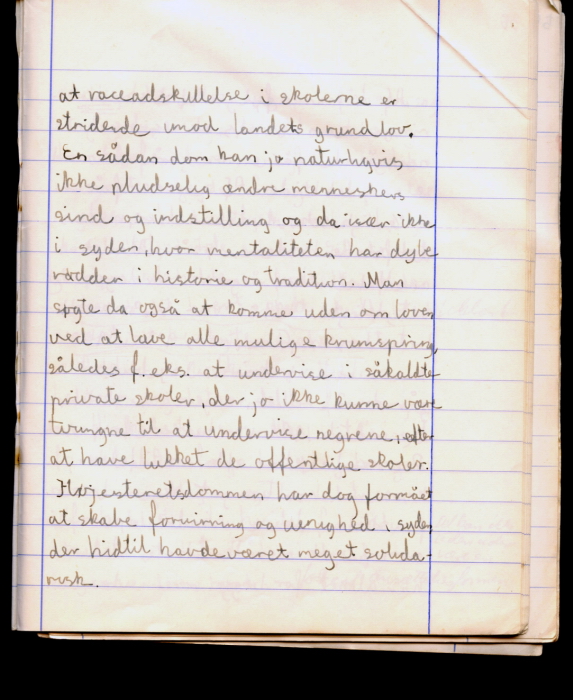 at raceadskillelse i skolerne er
stridende imod landets grundlov.
En sådan dom kan jo naturligvis
ikke pludselig ændre menneskers
sind og indstilling og da især ikke
i syden, hvor mentaliteten har dybe
rødder i historie og tradition. Man
søgte da også at komme uden om loven
ved at lave alle mulige krumspring,
således f. eks. at undervise i såkaldte
private skoler, der jo ikke kunne være
tvungne til at undervise negrene, efter
at have lukket de offentlige skoler.
Højesteretsdommen har dog formået
at skabe forvirring og uenighed i syden,
der hidtil havde været meget solida-
risk.